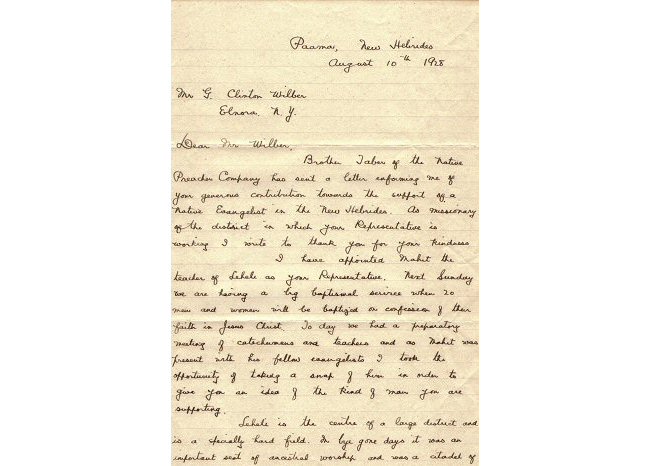 Paama, New Hebrides
August 10th 1928
Mr G. Clinton Wilber
Elnora. N.Y.
Dear Mr Wilber,
Brother Taber of the Native
Preacher Company has sent a letter informing me of
your generous contribution towards the support of a
Native Evangelist in the New Hebrides. As missionary
of the district in which your Representative is
working I write to thank you for your kindness
I have appointed Mahit the
teacher of Lehele as your Representative. Next Sunday
we are having a big baptismal service when 20
men and women will be baptized on confession of their
faith in Jesus Christ. To day we had a preparatory
meeting of catechumens and teachers and as Mahit was
present with his fellow evangelists I took the
opportunity of taking a snap of him in order to
give you an idea of the kind of man you are
supporting.
Lehele is the centre of a large district and
is a specially hard field. In bye gone days it was an
important seat of ancestral worship and was a citadel of